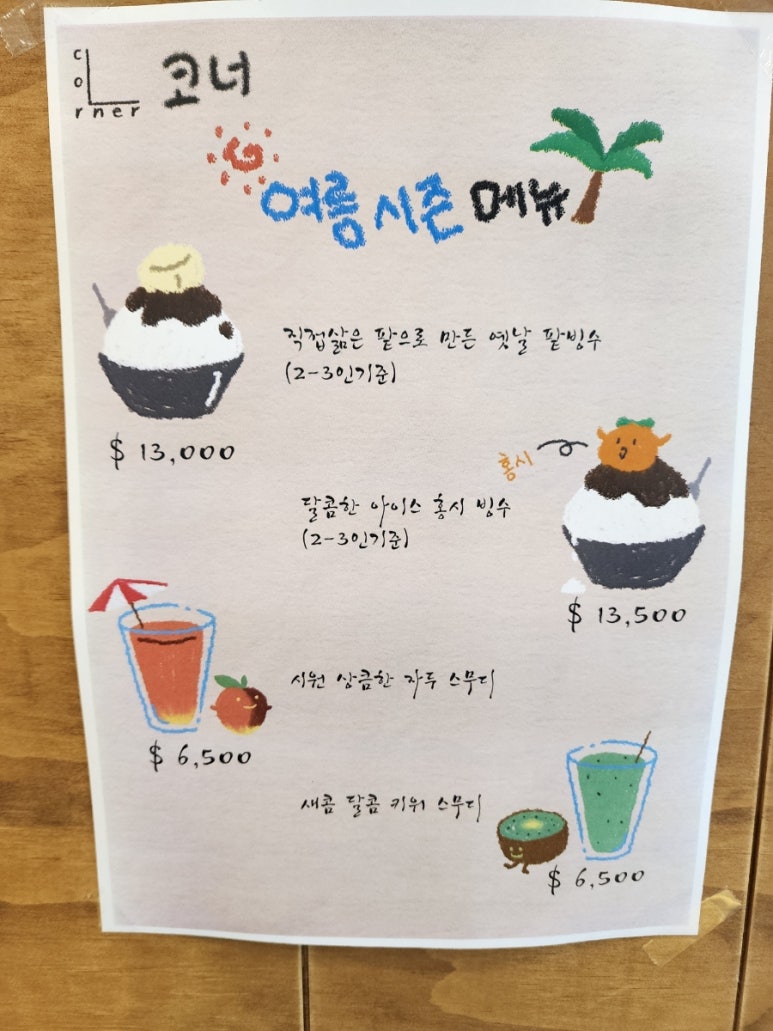 corner 코너
여름 시즌 메뉴
직접삶은 팥으로 만든 옛날 팥빙수
(2-3인기준)
$ 13,000
홍시
달콤한 아이스 홍시 빙수
(2-3인기준)
$ 13,500
시원 상콤한 자두 스무디
$ 6,500
새콤 달콤 키위 스무디
$ 6,500